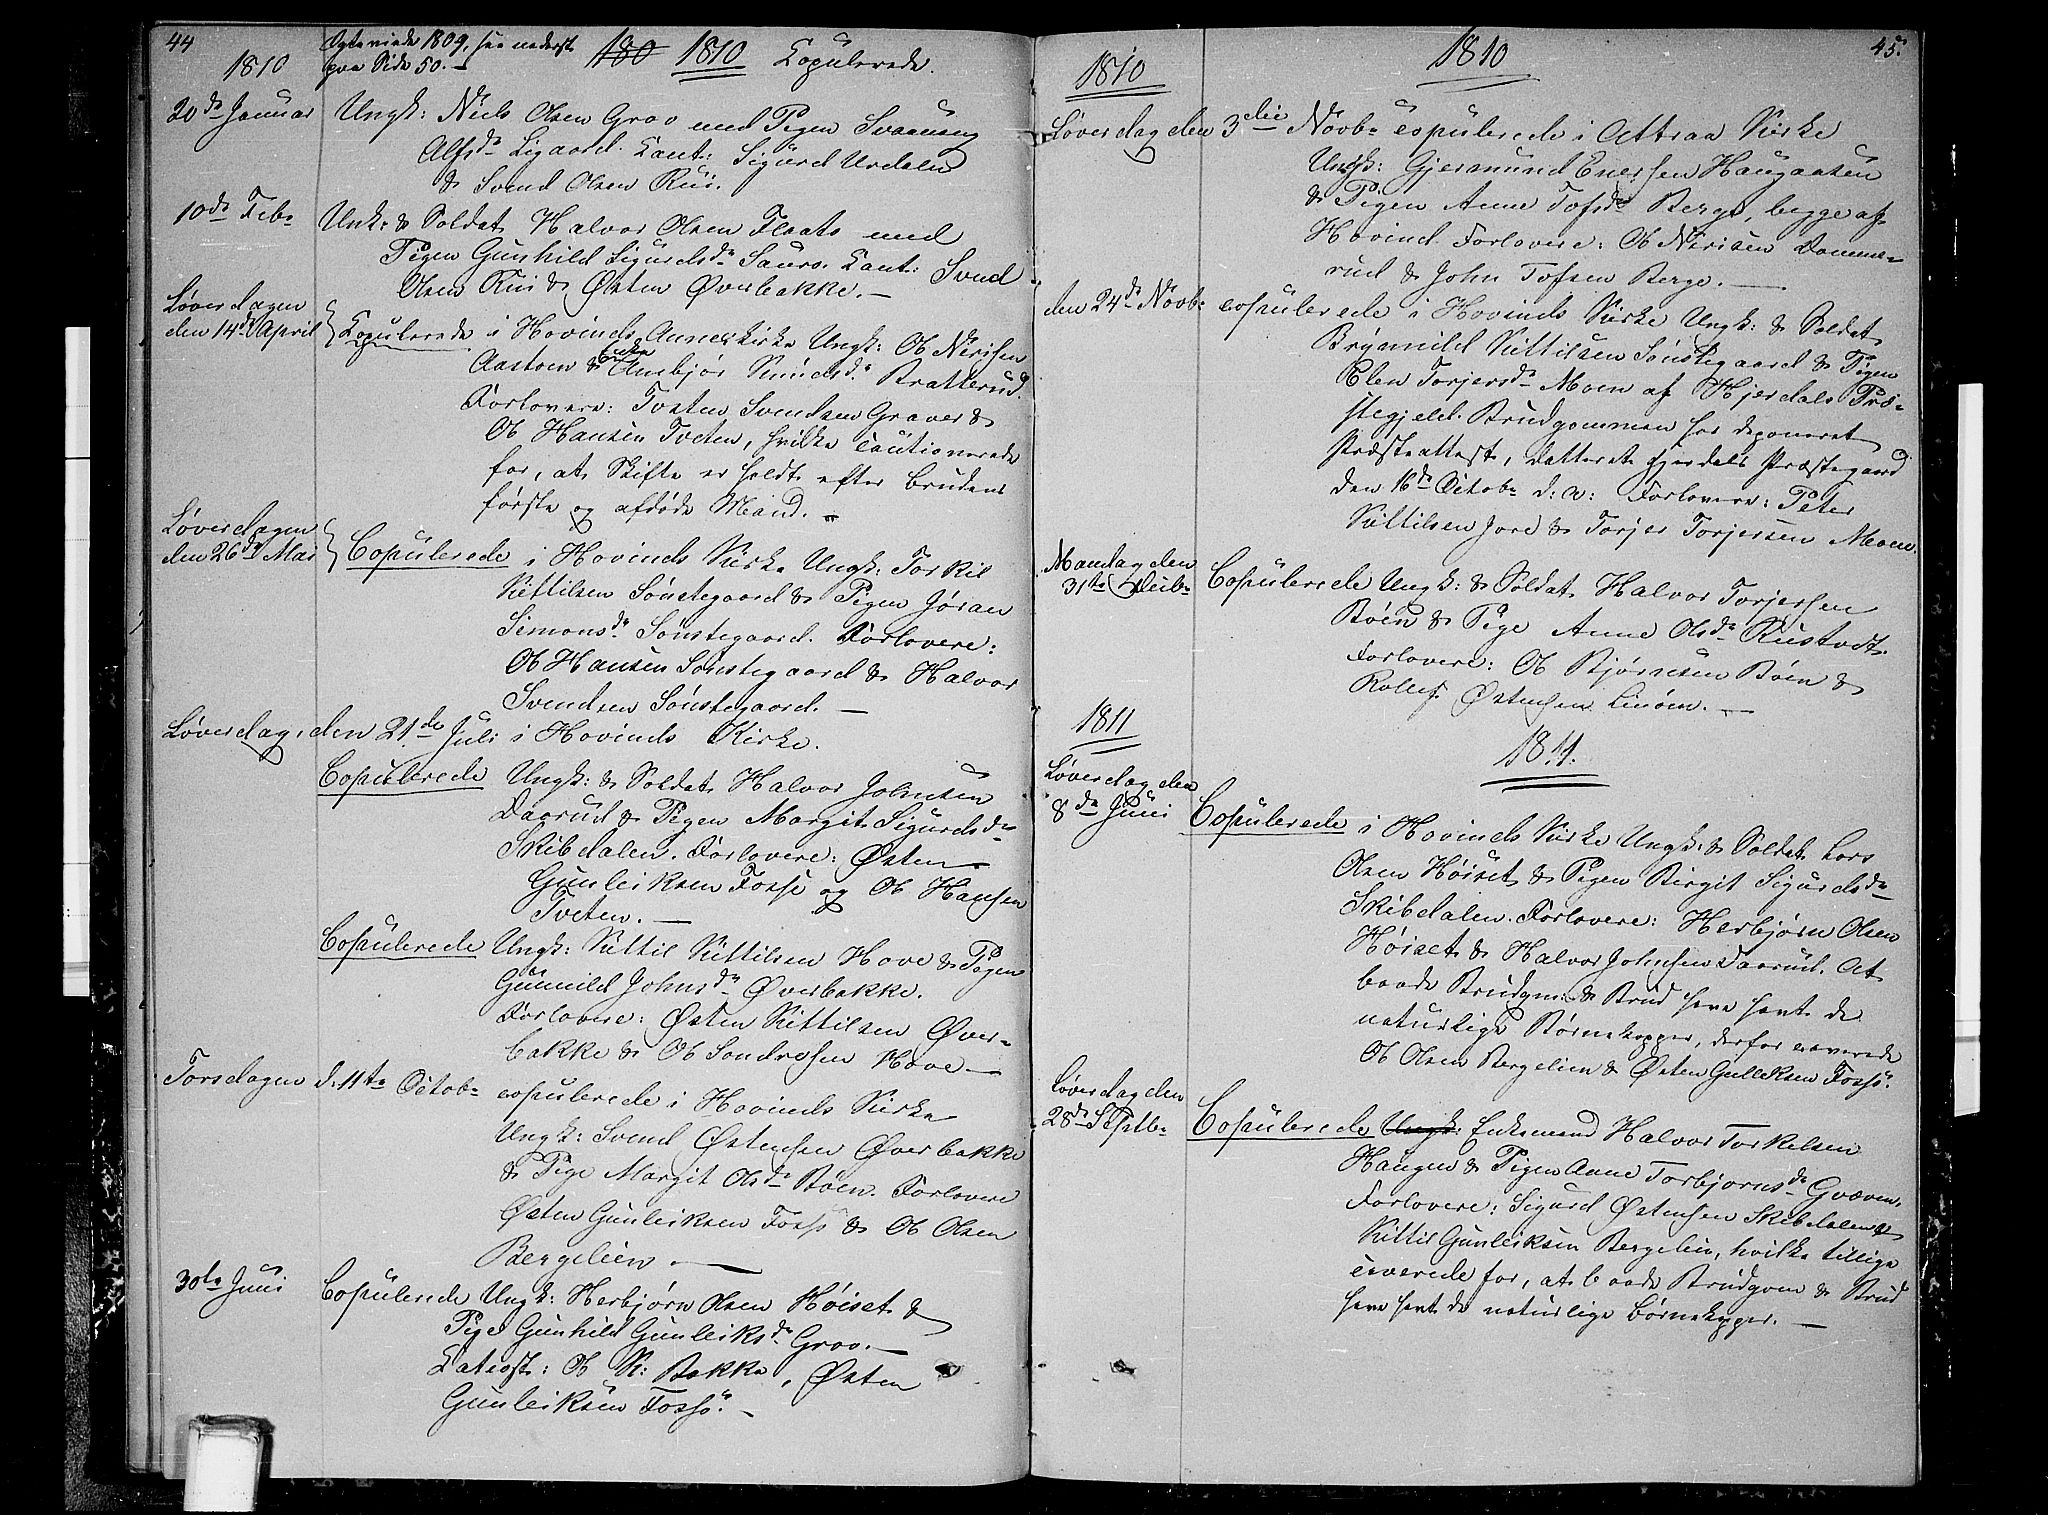 44
Ægteviede 1809, see nederst
paa Side 50. —
1810
180 1810 Copulerede.
20de Januar Ungk: Niels Olsen Groo med Pigen Svanaug
Alfsdr Ligaard. Caut: Sigurd Urdalen
& Svend Olsen Rui.
10de Febr Unk: & Soldat Halvor Olsen Flaato med
Pigen Gunhild Sigurdsdr Sauro. Caut: Svend
Olsen Rui & Østen Øverbakke. —
Løverdagen
den 14de April Copulerede i Hovinds Annexkirke Ungk: Ole Nirisen
Aastoen & Enke Anbjør Knudsdr Bratterud.
Forlovere: Tosten Svendsen Graver &
Ole Hansen Tveten, hvilke cautionerede
for, at Skifte er holdt efter Brudens
første og afdøde Mand. —
Løverdagen
den 26de Mai Copulerede i Hovinds Kirke Ungk: Torkil
Kittilsen Sønstegaard & Pigen Jøran
Simonsdr Sønstegaard. Forlovere:
Ole Hansen Sønstegaard & Halvor
Svendsen Sønstegaard. —
Løverdag, den 21de Juli i Hovinds Kirke.
Copulerede Ungk: & Soldat Halvor Johnsen
Daarud & Pigen Margit Sigurdsdr
Skibdalen. Forlovere: Østen
Gunleiksen Fosse og Ole Hansen
Tveten. —
Copulerede Ungk: Kittil Kittilsen Hove & Pigen
Gunnild Johnsdr Øverbakke.
Forlovere: Østen Kittilsen Øver-
bakke & Ole Sondresen Hove —
Torsdagen d. 11te Octobr copulerede i Hovinds Kirke
Ungk: Svend Østensen Øverbakke
& Pige Margit Olsdr Bøen. Forlovere
Østen Gunleiksen Fosse & Ole Olsen
Bergelien. —
30te Juni Copulerede Ungk: Herbjørn Olsen Høiset &
Pige Gunhild Gunleiksdr Groo. —
Catiost: Ole K: Bakke, Østen
Gunleiksen Fossø. —
45.
1810
1810
Løverdag den 3die Novbr copulerede i Attraa Kirke
Ungk: Gjermund Enersen Haugaasen
& Pigen Anne Tofsdr Berge, begge af
Hovind. Forlovere: Ole Nirisen Domme-
rud & John Tofsen Berge. —
den 24de Novbr copulerede i Hovinds Kirke Ungk: & Soldat
Brynnild Kittilsen Sønstegaard & Pigen
Elen Torjersdr Moen af Hjerdals Præ-
stegjeld. Brudgommen har deponeret
Præsteattest, datteret Hjerdals Præstegaard
den 16de Octobr d: a: Forlovere: Peter
Kittilsen Jore & Torjer Torjersen Moen.
Mandag den
31te Decbr Copulerede Ungk: & Soldat Halvor Torjersen
Bøen & Pige Anne Olsdr Rustvedt.
Forlovere: Ole Bjørnsen Bøen &
Rollef Østensen Luøen. —
1811
1811.
Løverdag den
8de Juni Copulerede i Hovinds Kirke Ungk: & Soldat Lars
Olsen Høiset & Pigen Birgit Sigurdsdr
Skibdalen. Forlovere: Herbjørn Olsen
Høiset & Halvor Johnsen Daarud. At
baade Brudgm: & Brud have havt de
naturlige Børnekopper, derfor caverede
Ole Olsen Bergelien & Østen Gulleksen Fossø.
Løverdag den
28de Septbr Copulerede Ungk: Enkemand Halvor Torkelsen
Haugen & Pigen Anne Torbjørnsdr Gvæven.
Forlovere: Sigurd Østensen Skibdalen &
Kittil Gunleiksen Bergelien, hvilke tillige
caverede for, at baade Brudgom & Brud
have havt de naturlige Børnekopper. —